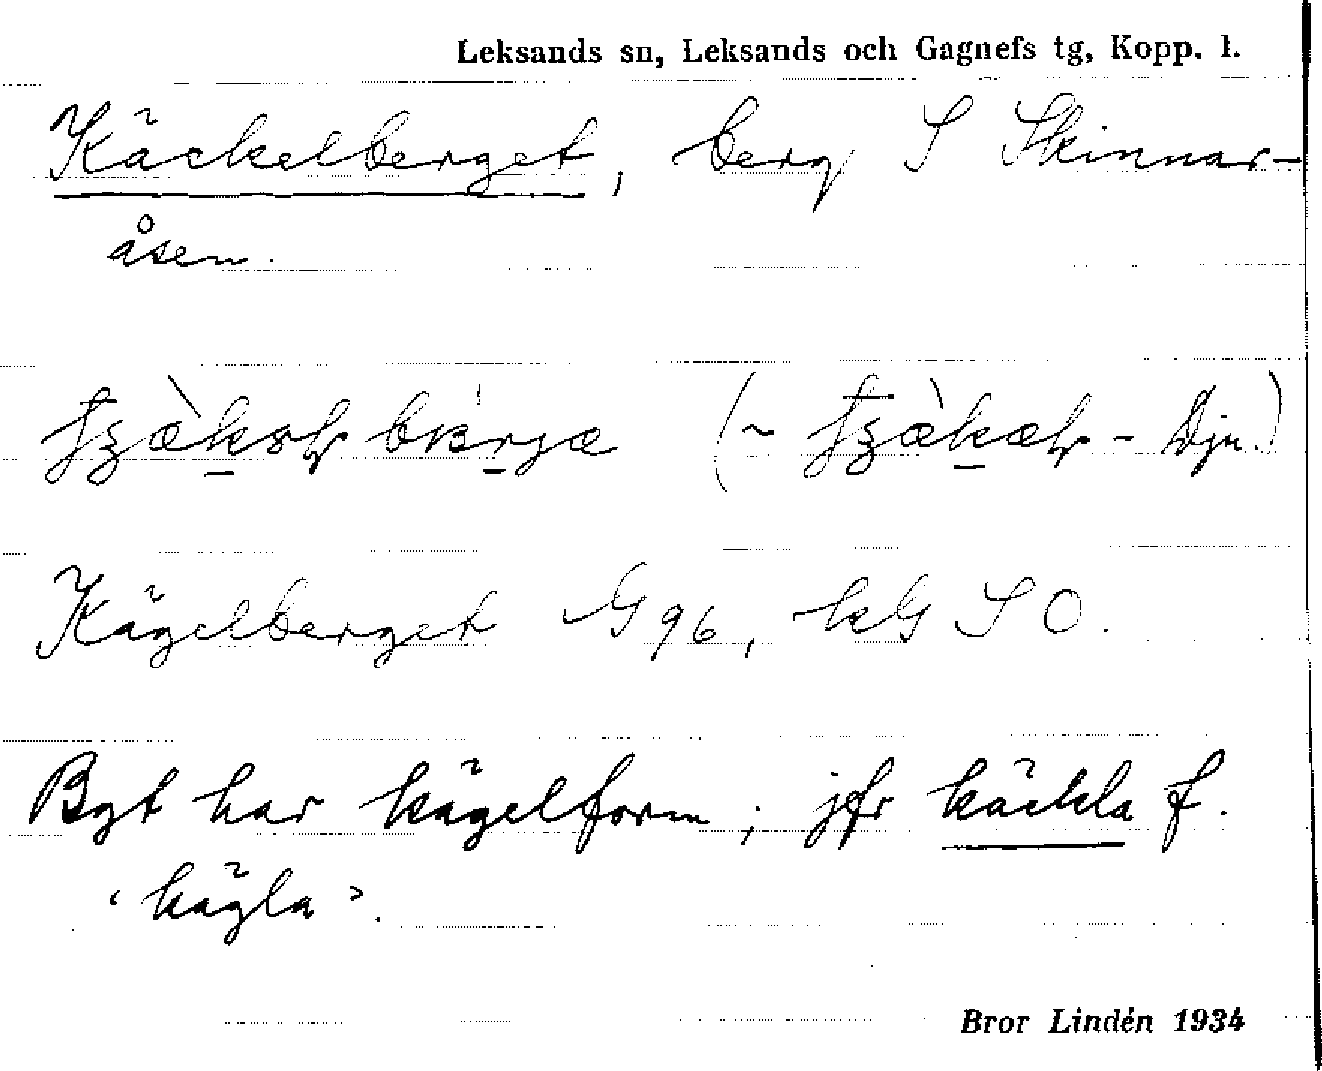 Leksands sn, Leksands och Gagnefs tg, Kopp. l.
Käckelberget, berg S Skinnar-
åsen.
(~ - Dju.)
Kägelberget G 96, kG SO.
Bgt har kägelform; jfr käckla f.
‘kägla’.
Bror Lindén 1934